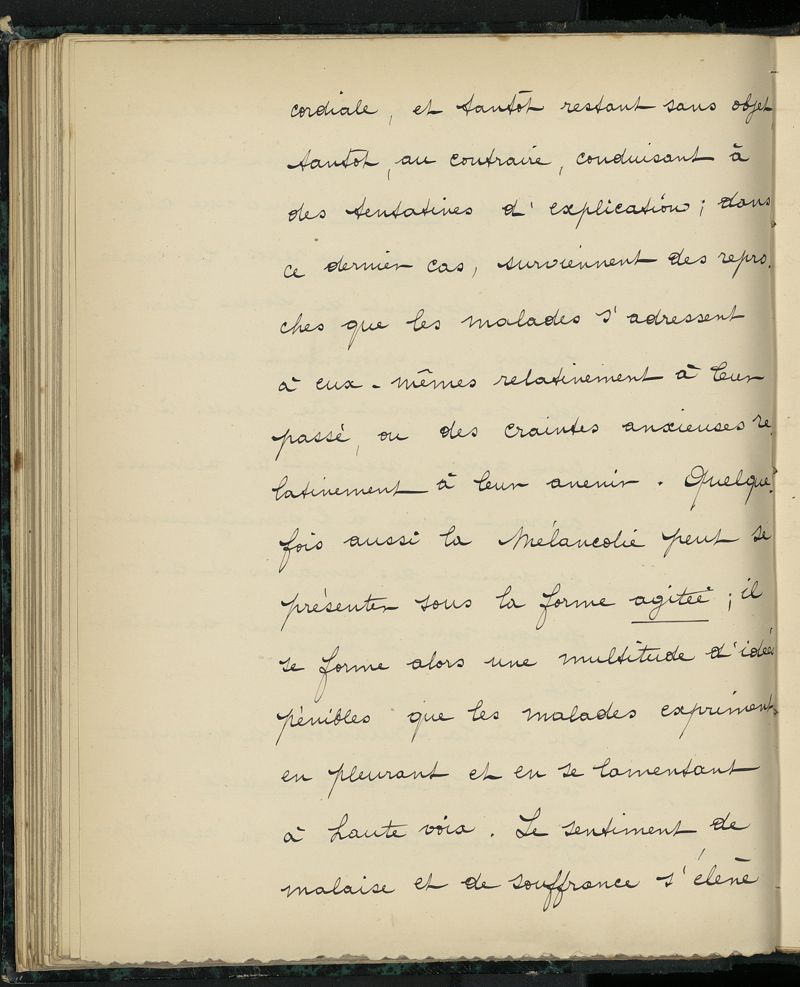 cordiale, et tantôt restant sans objet,
tantôt, au contraire, conduisant à
des tentatives d'explication; dans
ce dernier cas, surviennent des repro-
ches que les malades s'adressent
à eux-mêmes relativement à leur
passé, ou des craintes anxieuses re-
lativement à leur avenir. Quelque-
fois aussi la Mélancolie peut se
présenter sous la forme agitée; il
se forme alors une multitude d'idées
pénibles que les malades expriment
en pleurant et en se lamentant
à haute voix. Le sentiment de
malaise et de souffrance s'élève